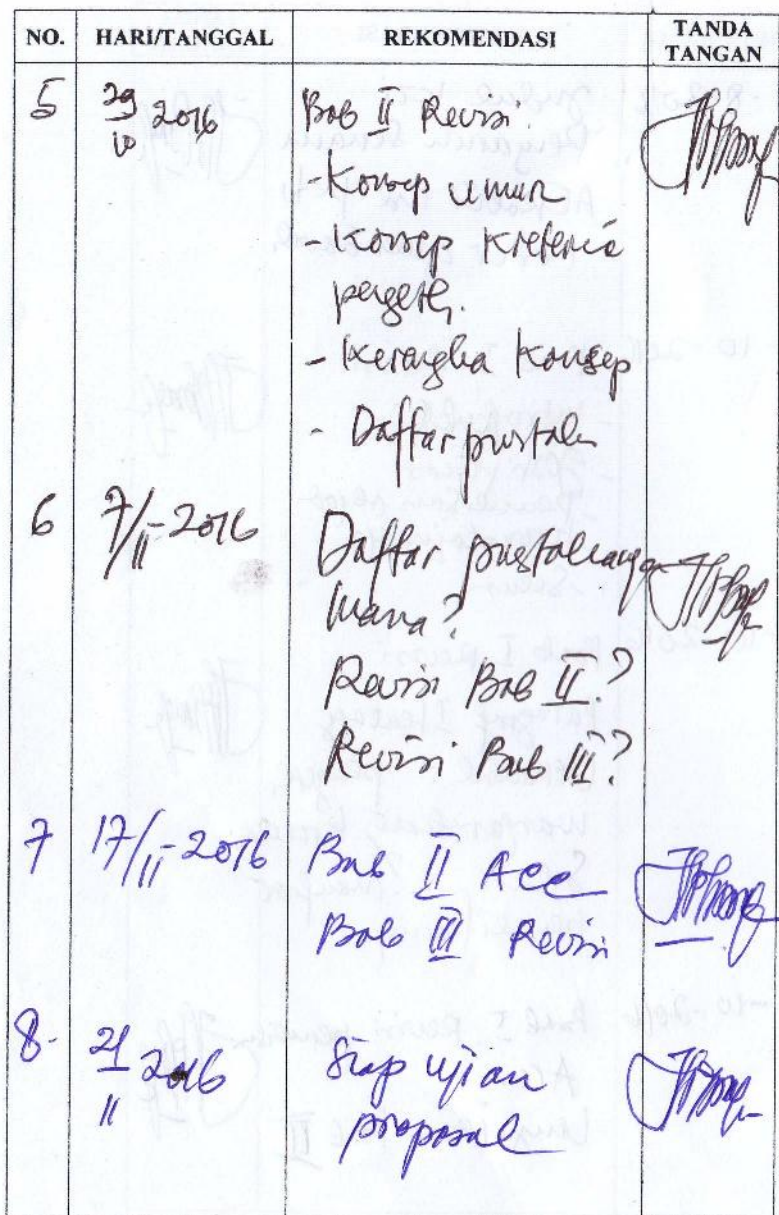 NO. HARI/TANGGAL REKOMENDASI TANDA TANGAN
5 29/10 2016 Bab II Revisi.
- Konsep umum
- Konsep Kreteria
- Kerangka Konsep
- Daftar pustaka
6 7/11-2016 Daftar pustakanya
mana?
Revisi Bab II.?
Revisi Bab III?
7 17/11-2016 Bab II Acc
Bab III Revisi
8. 21/11 2016 Siap ujian
proposal